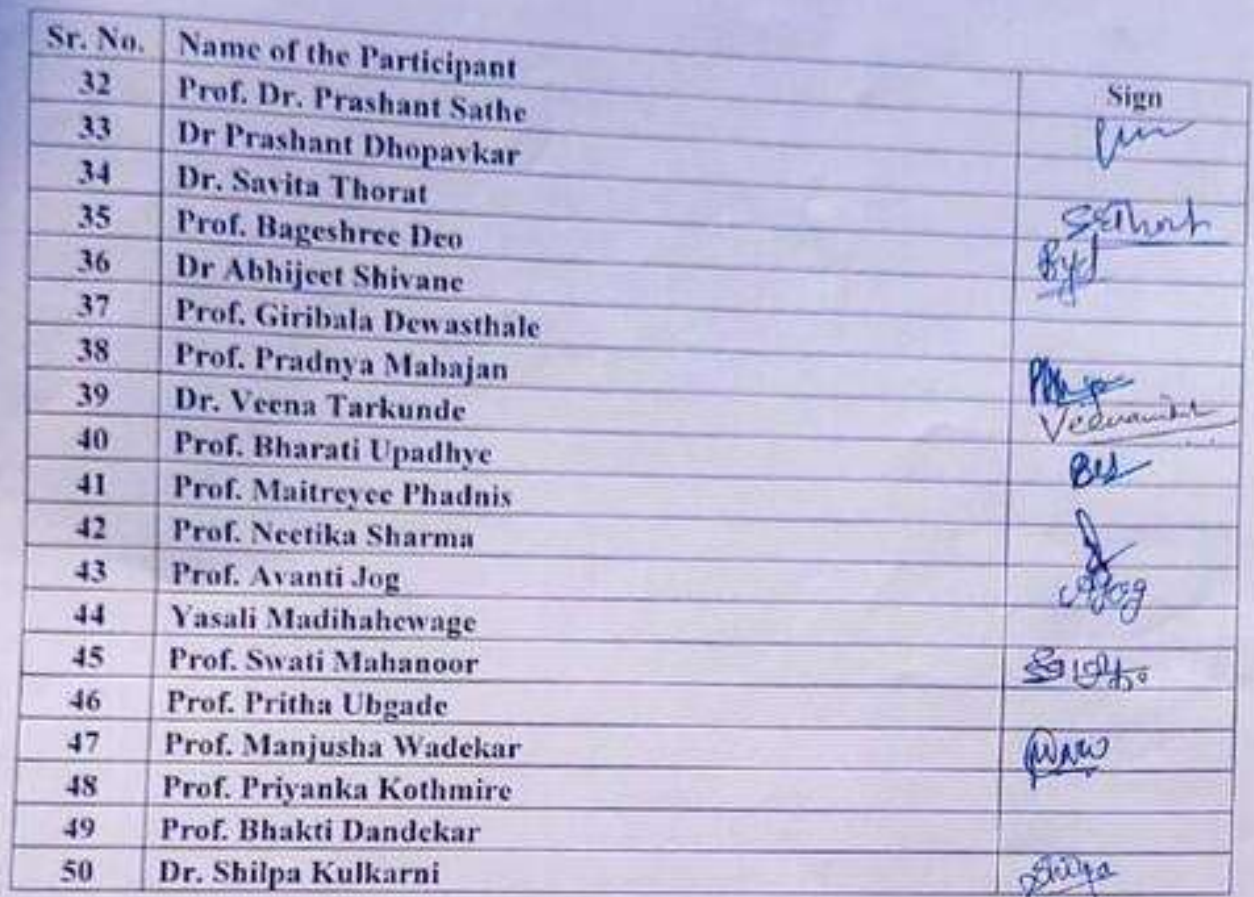 Sr. No. Name of the Participant Sign
32 Prof. Dr. Prashant Sathe
33 Dr Prashant Dhopavkar
34 Dr. Savita Thorat SSThorat
35 Prof. Bageshree Deo
36 Dr Abhijeet Shivane
37 Prof. Giribala Dewasthale
38 Prof. Pradnya Mahajan
39 Dr. Veena Tarkunde
40 Prof. Bharati Upadhye
41 Prof. Maitreyee Phadnis
42 Prof. Neetika Sharma
43 Prof. Avanti Jog AJog
44 Yasali Madihahewage
45 Prof. Swati Mahanoor
46 Prof. Pritha Ubgade
47 Prof. Manjusha Wadekar
48 Prof. Priyanka Kothmire
49 Prof. Bhakti Dandekar
50 Dr. Shilpa Kulkarni Shilpa